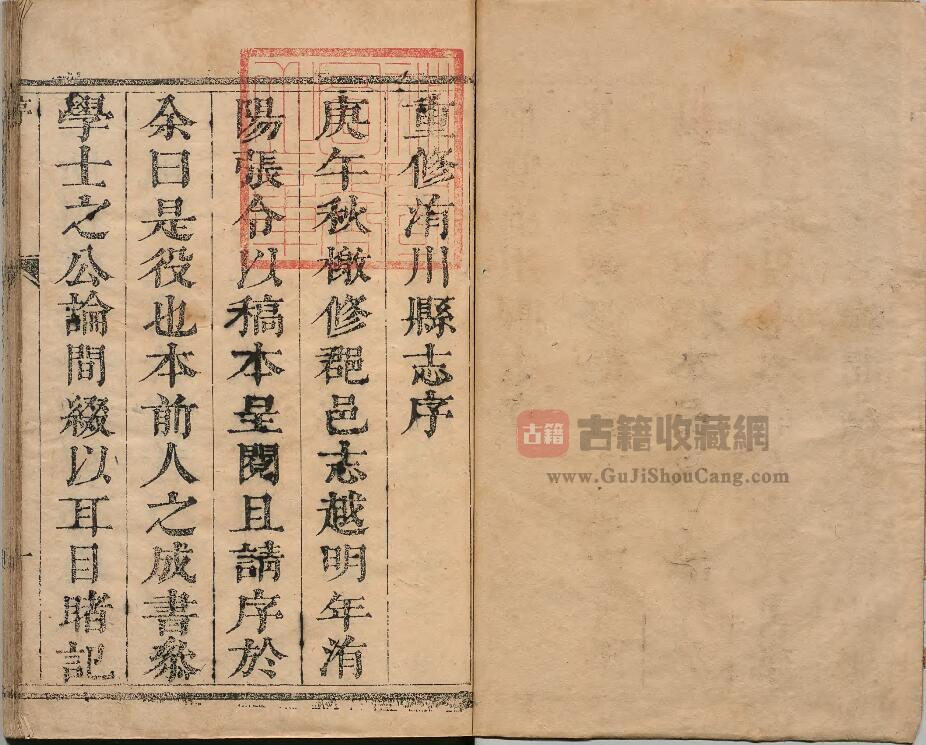 重修洧川縣志序
庚午秋檄修郡邑志越明年洧
陽張令以稿本呈閱且請序於
余曰是役也本前人之成書叅
學士之公論間綴以耳目睹記
序
一
古籍 古籍收藏網
www.GuJiShouCang.com